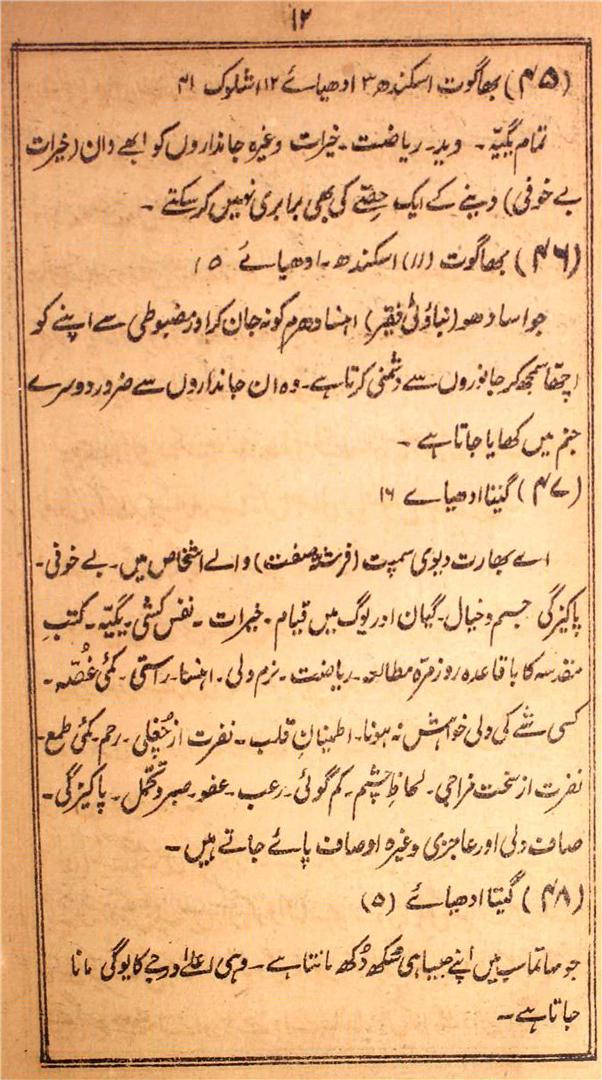 ۱۲
(۴۵) بھاگوت اسکندھ ۳ ادھیائے ۱۲ اشلوک ۴۱
تمام یگیہ ۔ وید ۔ ریاضت ۔ خیرات وغیرہ جانداروں کو ابھے دان (خیرات
بے خوفی) دینے کے ایک حصّے کی بھی برابری نہیں کر سکتے ۔
(۴۶) بھاگوت (۱۱) اسکندھ ۔ ادھیائے ۵
جو اسادھو (بناوٹی فقیر) اہنسا دھرم کو نہ جان کر اور مضبوطی سے اپنے کو
اچھا سمجھ کر جانوروں سے دشمنی کرتا ہے ۔ وہ ان جانداروں سے ضرور دوسرے
جنم میں کھایا جاتا ہے ۔
(۴۷) گیتا ادھیاے ۱۶
اے بھارت دیوی سمپت (فرشتہ صفت) والے اشخاص میں ۔ بے خوفی ۔
پاکیزگی جسم و خیال ۔ گیان اور یوگ میں قیام ۔ خیرات ۔ نفس کشی ۔ یگیہ ۔ کتب
مقدسہ کا باقاعدہ روز مرّہ مطالعہ ۔ ریاضت ۔ نرم دلی ۔ اہنسا ۔ راستی ۔ کمئی غُصّہ ۔
کسی شے کی دلی خواہش نہ ہونا ۔ اطمنانِ قلب ۔ نفرت از چُغلی ۔ رحم ۔ کمئی طمع ۔
نفرت از سخت مزاجی ۔ لحاظِ چشم ۔ کم گوئی ۔ رعب ۔ عفو ۔ صبر و تحمّل ۔ پاکیزگی ۔
صاف دلی اور عاجزی وغیرہ اوصاف پائے جاتے ہیں ۔
(۴۸) گیتا ادھیائے (۵)
جو مہاتما سب میں اپنے جیسا ہی سُکھ دُکھ مانتا ہے ۔ وہی اعلےٰ درجے کا یوگی مانا
جاتا ہے ۔